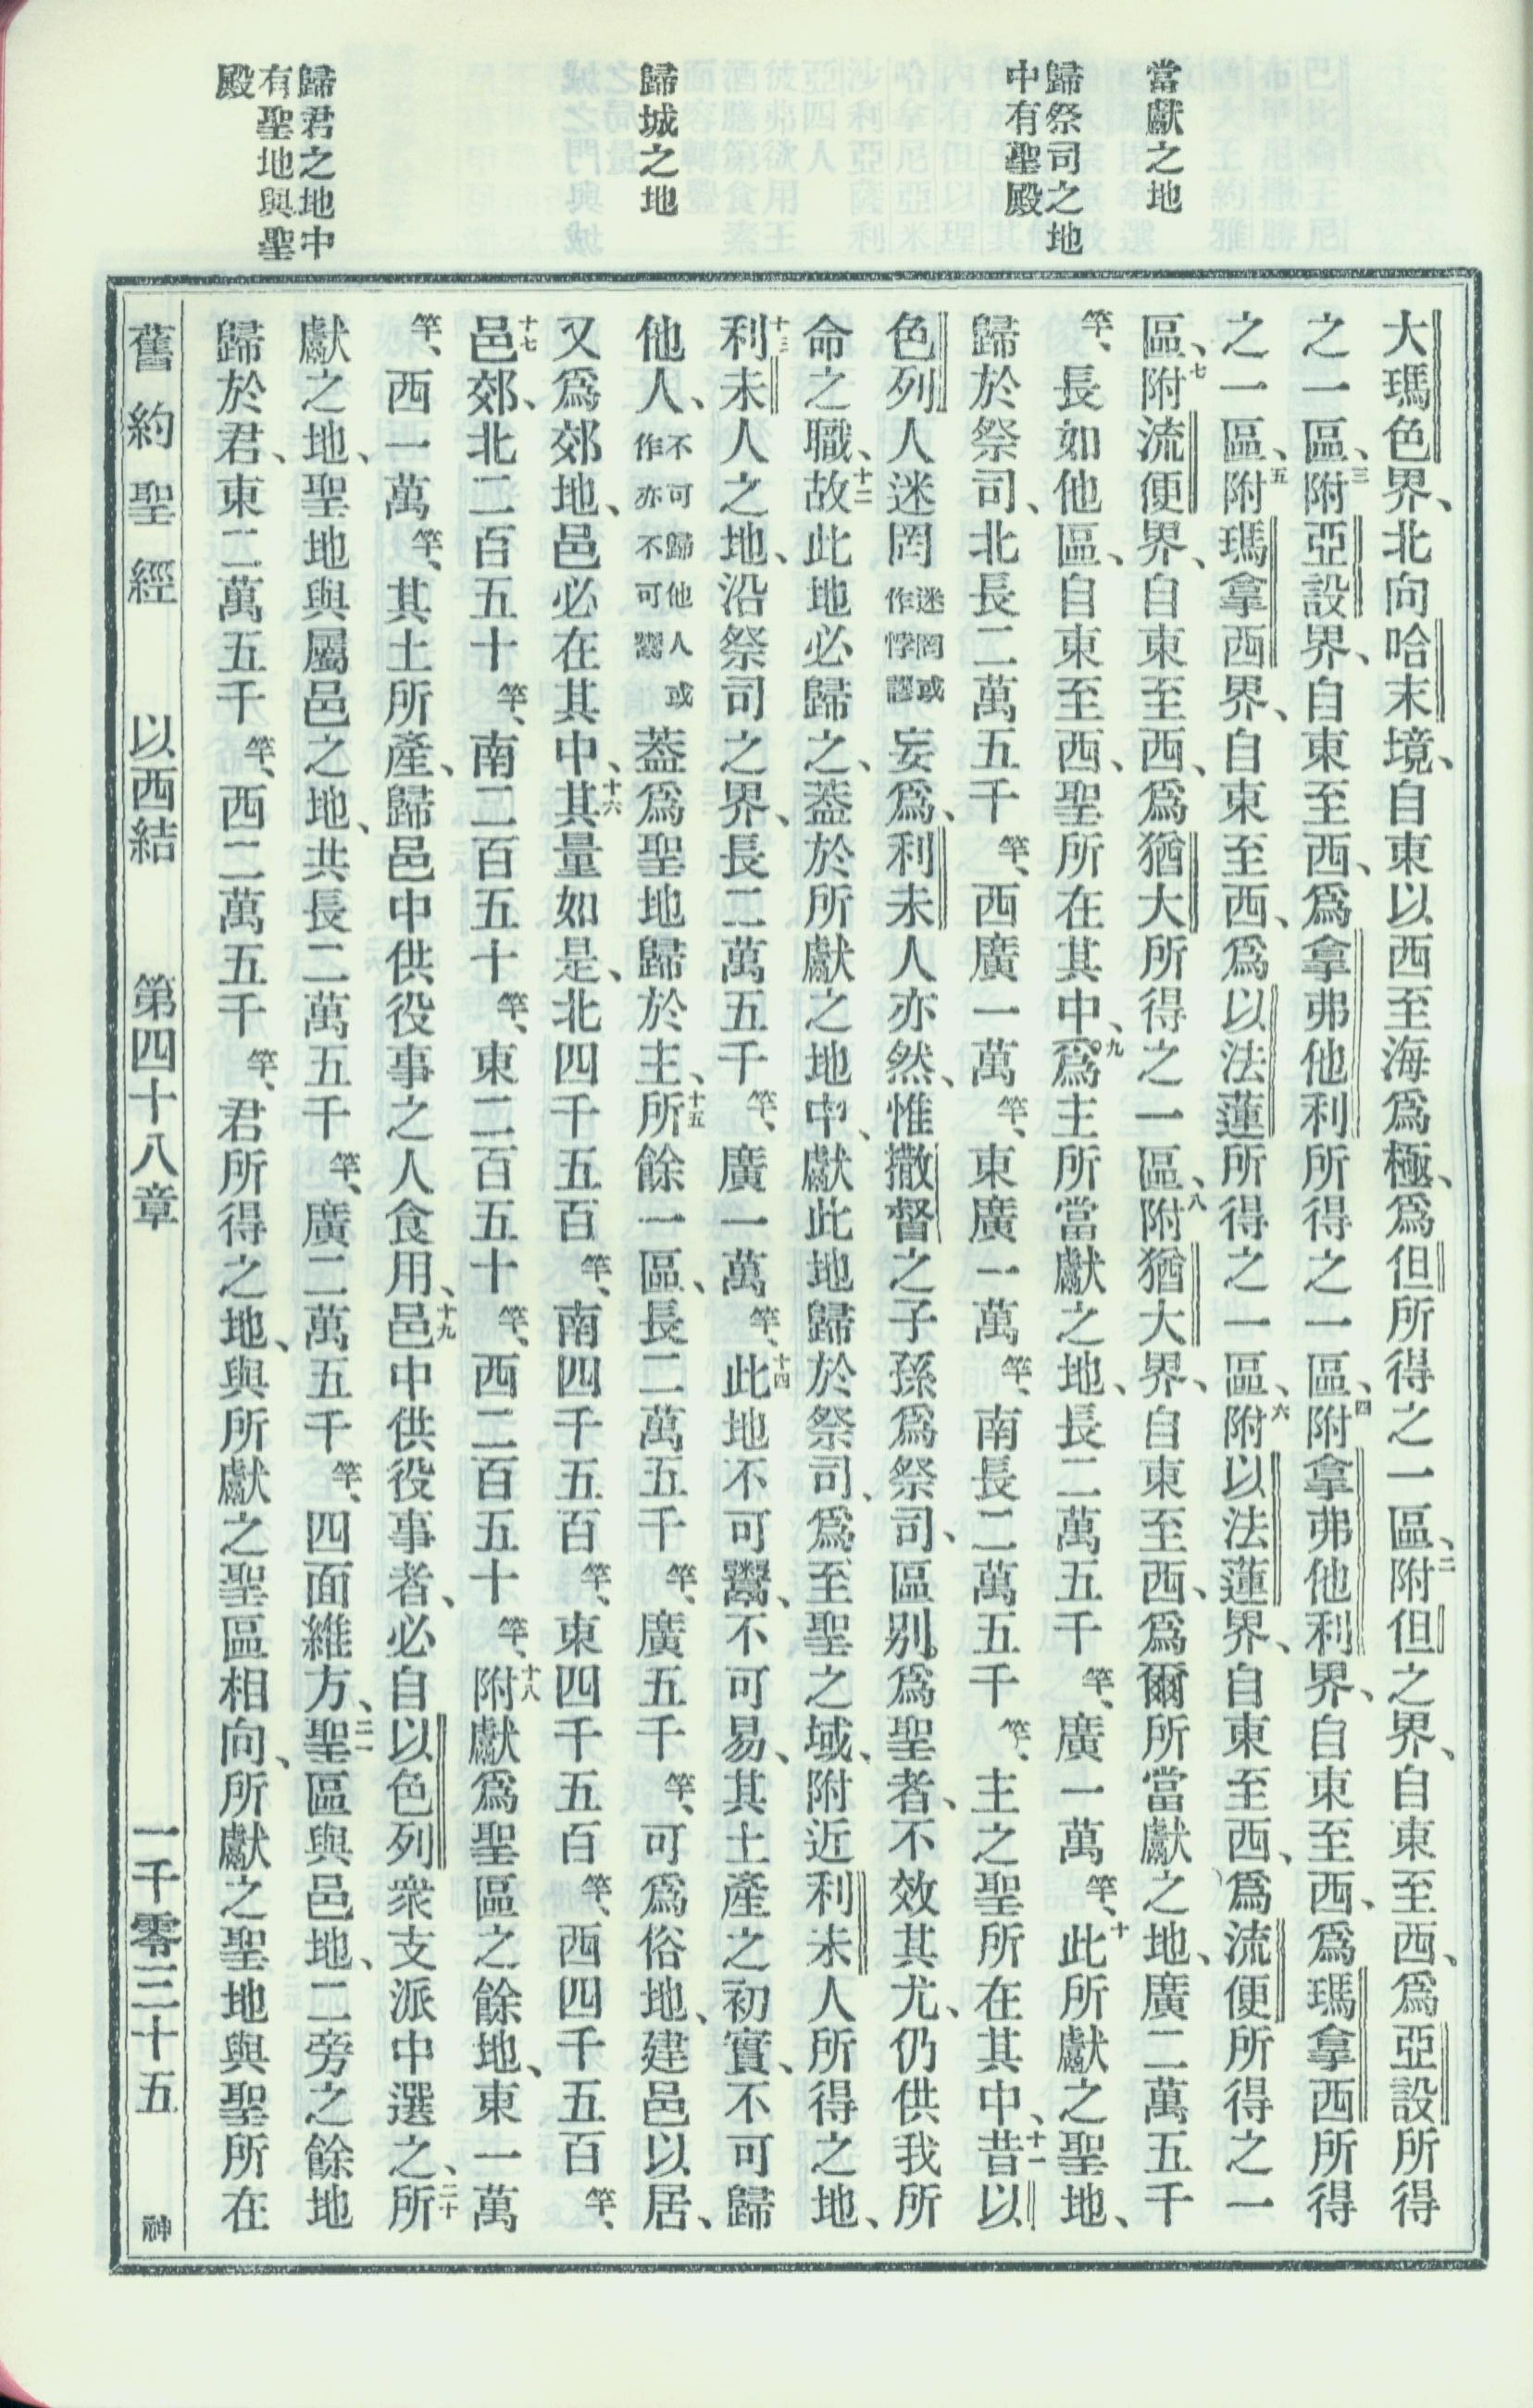 當獻之地
歸祭司之地
中有聖殿
歸城之地
歸君之地中
有聖地與聖
殿
大瑪色界、北向哈末境、自東以西至海爲極、爲但所得之一區、二附但之界、自東至西、爲亞設所得
之一區、三附亞設界、自東至西、爲拿弗他利所得之一區、四附拿弗他利界、自東至西、爲瑪拿西所得
之一區、五附瑪拿西界、自東至西、爲以法蓮所得之一區、六附以法蓮界、自東至西、爲流便所得之一
區、七附流便界、自東至西、爲猶大所得之一區、八附猶大界、自東至西、爲爾所當獻之地、廣二萬五千
竿、長如他區、自東至西、聖所在其中、九爲主所當獻之地、長二萬五千竿、廣一萬竿、十此所獻之聖地、
歸於祭司、北長二萬五千竿、西廣一萬竿、東廣一萬竿、南長二萬五千竿、主之聖所在其中、十一昔以
色列人迷罔迷罔或作悖謬妄爲、利未人亦然、惟撒督之子孫爲祭司、區別爲聖者、不效其尤、仍供我所
命之職、十二故此地必歸之、蓋於所獻之地中、獻此地歸於祭司、爲至聖之域、附近利未人所得之地、
十三利未人之地、沿祭司之界、長二萬五千竿、廣一萬竿、十四此地不可鬻、不可易、其土產之初實、不可歸
他人、不可歸他人或作亦不可鬻蓋爲聖地歸於主、十五所餘一區、長二萬五千竿、廣五千竿、可爲俗地、建邑以居、
又爲郊地、邑必在其中、十六其量如是、北四千五百竿、南四千五百竿、東四千五百竿、西四千五百竿、
十七邑郊、北二百五十竿、南二百五十竿、東二百五十竿、西二百五十竿、十八附獻爲聖區之餘地、東一萬
竿、西一萬竿、其土所產、歸邑中供役事之人食用、十九邑中供役事者、必自以色列衆支派中選之、二十所
獻之地、聖地與屬邑之地、共長二萬五千竿、廣二萬五千竿、四面維方、二一聖區與邑地、二旁之餘地
歸於君、東二萬五千竿、西二萬五千竿、君所得之地、與所獻之聖區相向、所獻之聖地與聖所在
舊約聖經 以西結 第四十八章 一千零三十五 神